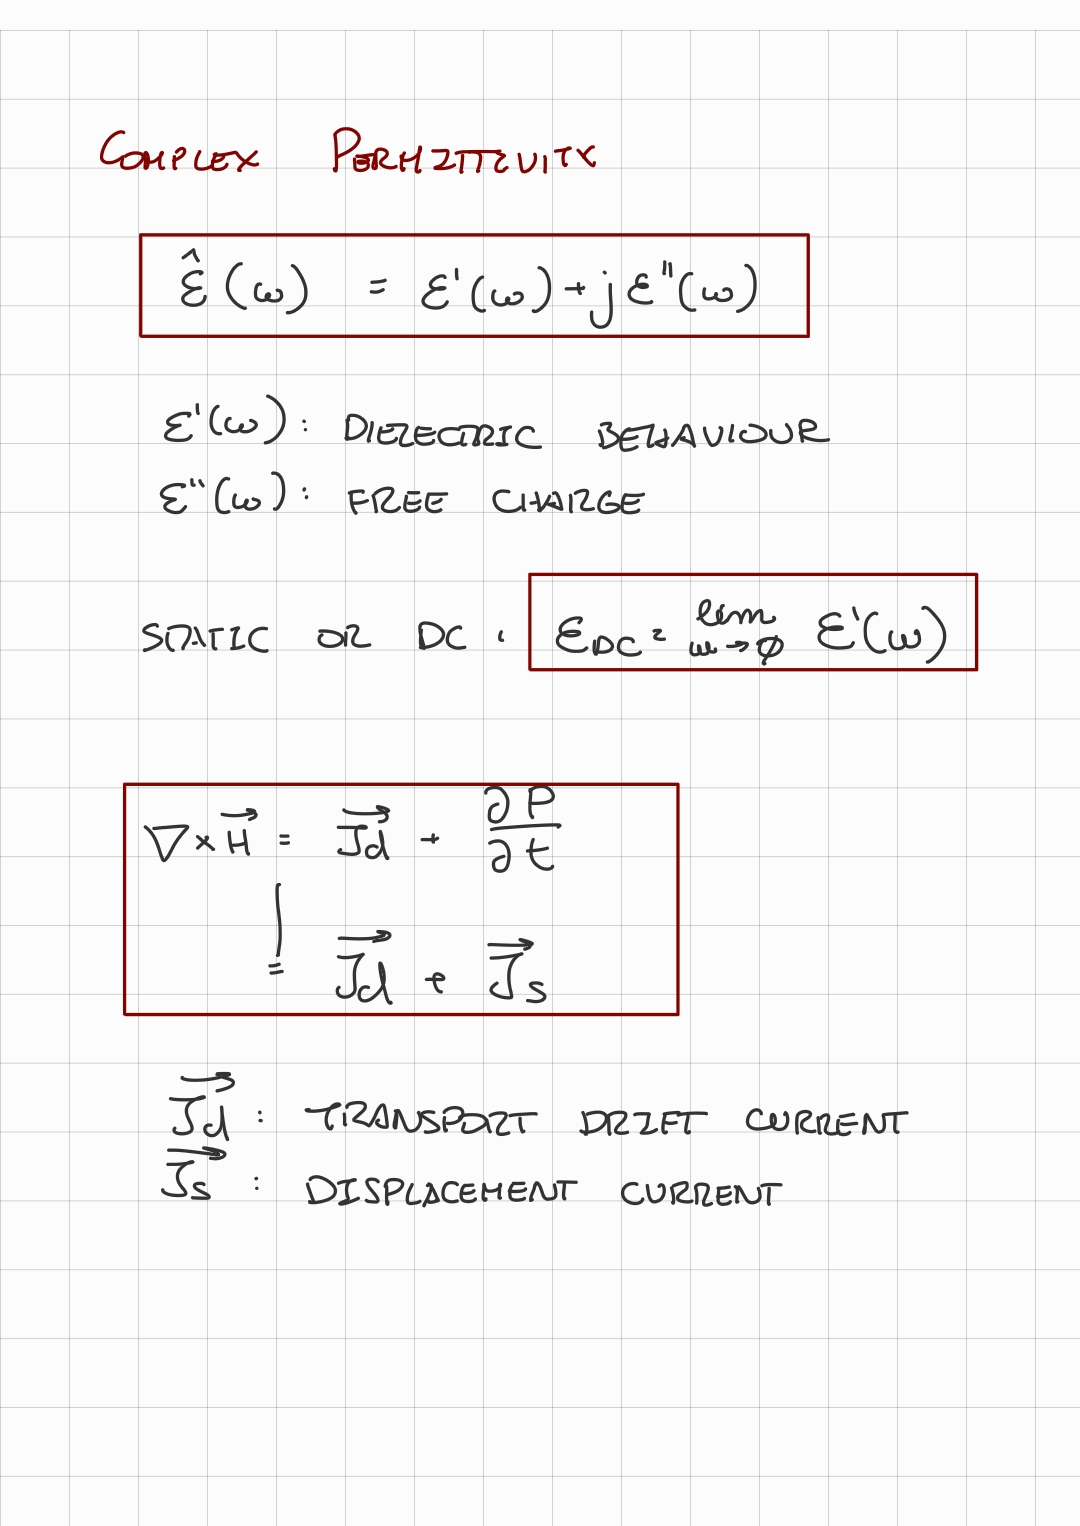 COMPLEX PERMITTIVITY
ε̂(ω) = ε'(ω) + jε''(ω)
ε'(ω): DIELECTRIC BEHAVIOUR
ε''(ω): FREE CHARGE
STATIC OR DC: ε_DC = lim_{ω→∅} ε'(ω)
∇×H⃗ = J⃗d + ∂P/∂t
= J⃗d + J⃗s
J⃗d: TRANSPORT DRIFT CURRENT
J⃗s: DISPLACEMENT CURRENT